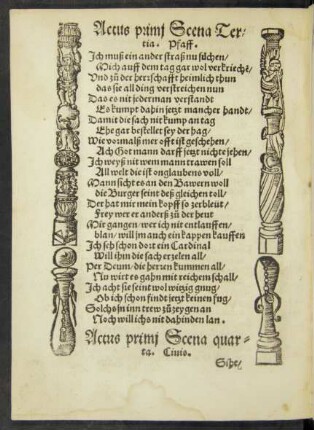 Actus primi Scena Ter⸗
tia. Pfaff.
Ich muß ein ander straß nu suͤchen/
Mich auff dem tag gar wol verkriechẽ
Vnd zuͦ der herrschafft heimlich thun
das sie all ding verstreichen nun
Das es nit jederman verstandt
Es kumpt dahin jetzt mancher handt/
Damit die sach nit kump an tag
Ehe gar bestellet sey der hag/
Wie vormalß mer offt ist geschehen/
Ach Got man darff jetzt nichts jehen/
Ich weyß nit wem mann trawen soll
All welt die ist onglaubens voll/
Mann sicht es an den Bawern woll
die Burger seint deß gleichen toll/
Der hat mir mein kopff so zerbleut/
Frey wer er anderß zuͦ der heut
Mir gangen/ wer ich nit entlauffen/
blan/ will jm auch ein kappen kauffen
Ich seh schon dort ein Cardinal
Will ihn die sach erzelen all/
Per Deum/ die herren kummen all/
Nu wirt es gahn mit reichem schall/
Ich acht sie seint wol witzig gnug/
Ob ich schon findt jetzt keinen fug/
Solchs in inn trew zuͦ zeygen an
Noch will ichs nit dahinden lan.
Actus primi Scena quar⸗
ta. Ciuis.
Sihe/